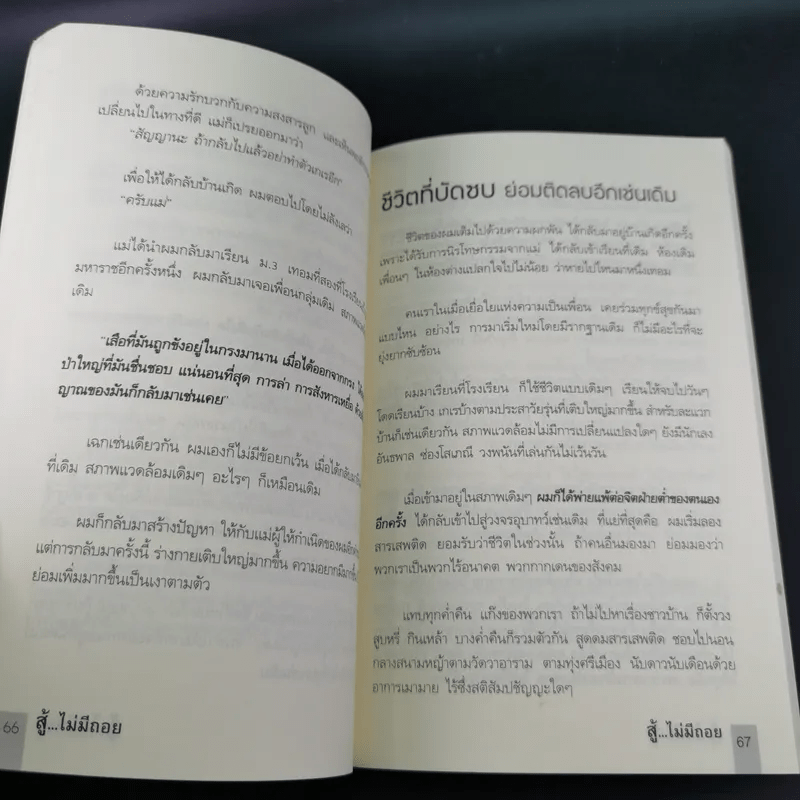 ด้วยความรักบวกกับความสงสารลูก และเห็นผม
เปลี่ยนไปในทางที่ดี แม่ก็เปรยออกมาว่า
"สัญญานะ ถ้ากลับไปแล้วอย่าทำตัวเกเรอีก"
เพื่อให้ได้กลับบ้านเกิด ผมตอบไปโดยไม่ลังเลว่า
"ครับแม่"
แม่ได้นำผมกลับมาเรียน ม.3 เทอมที่สองที่โรงเรียน
มหาราชอีกครั้งหนึ่ง ผมกลับมาเจอเพื่อนกลุ่มเดิม สภาพแวด
เดิม
"เสือที่มันถูกขังอยู่ในกรงมานาน เมื่อได้ออกจากกรง
ป่าใหญ่ที่มันชื่นชอบ แน่นอนที่สุด การล่า การสังหารเหยื่อ
ญาณของมันก็กลับมาเช่นเคย"
เฉกเช่นเดียวกัน ผมเองก็ไม่มีข้อยกเว้น เมื่อได้กลับมา
ที่เดิม สภาพแวดล้อมเดิมๆ อะไรๆ ก็เหมือนเดิม
ผมก็กลับมาสร้างปัญหา ให้กับแม่ผู้ให้กำเนิดของผมอีก
แต่การกลับมาครั้งนี้ ร่างกายเติบใหญ่มากขึ้น ความอยากมีมากขึ้น
ย่อมเพิ่มมากขึ้นเป็นเงาตามตัว
66 สู้...ไม่มีถอย
ชีวิตที่บัดซบ ย่อมติดลบอีกเช่นเดิม
ชีวิตของผมเติมไปด้วยความผกผัน ได้กลับมาอยู่บ้านเกิดอีกครั้ง
เพราะได้รับการนิรโทษกรรมจากแม่ ได้กลับเข้าเรียนที่เดิม ห้องเดิม
เพื่อนๆ ในห้องต่างแปลกใจไปไม่น้อย ว่าหายไปไหนมาหนึ่งเทอม
คนเราในเมื่อเยื่อใยแห่งความเป็นเพื่อน เคยร่วมทุกข์สุขกันมา
แบบไหน อย่างไร การมาเริ่มใหม่โดยมีรากฐานเดิม ก็ไม่มีอะไรที่จะ
ยุ่งยากซับซ้อน
ผมมาเรียนที่โรงเรียน ก็ใช้ชีวิตแบบเดิมๆ เรียนให้จบไปวันๆ
โดดเรียนบ้าง เกเรบ้างตามประสาวัยรุ่นที่เติบใหญ่มากขึ้น สำหรับละแวก
บ้านก็เช่นเดียวกัน สภาพแวดล้อมไม่มีการเปลี่ยนแปลงใดๆ ยังมีนักเลง
อันธพาล ซ่องโสเภณี วงพนันที่เล่นกันไม่เว้นวัน
เมื่อเข้ามาอยู่ในสภาพเดิมๆ ผมก็ได้พ่ายแพ้ต่อจิตฝ่ายต่ำของตนเอง
อีกครั้ง ได้กลับเข้าไปสู่วงจรอุบาทว์เช่นเดิม ที่แย่ที่สุดคือ ผมเริ่มลอง
สารเสพติด ยอมรับว่าชีวิตในช่วงนั้น ถ้าคนอื่นมองมา ย่อมมองว่า
พวกเราเป็นพวกไร้อนาคต พวกกากเดนของสังคม
แทบทุกค่ำคืน แก๊งของพวกเรา ถ้าไม่ไปหาเรื่องชาวบ้าน ก็ตั้งวง
สูบหรี่ กินเหล้า บางค่ำคืนก็รวมตัวกัน สูดดมสารเสพติด ชอบไปนอน
กลางสนามหญ้าตามวัดวาอาราม ตามทุ่งศรีเมือง นับดาวนับเดือนด้วย
อาการเมามาย ไร้ซึ่งสติสัมปชัญญะใดๆ
สู้...ไม่มีถอย 67